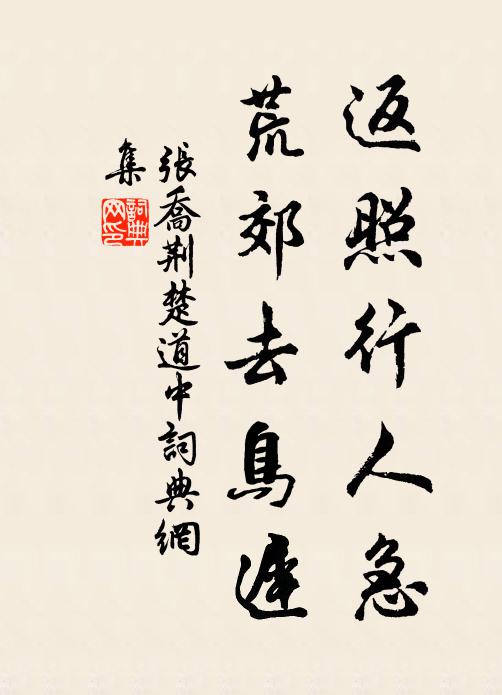 返照行人急
荒郊去鳥遲
張喬荆楚道中詞典網
集
詞典
网印